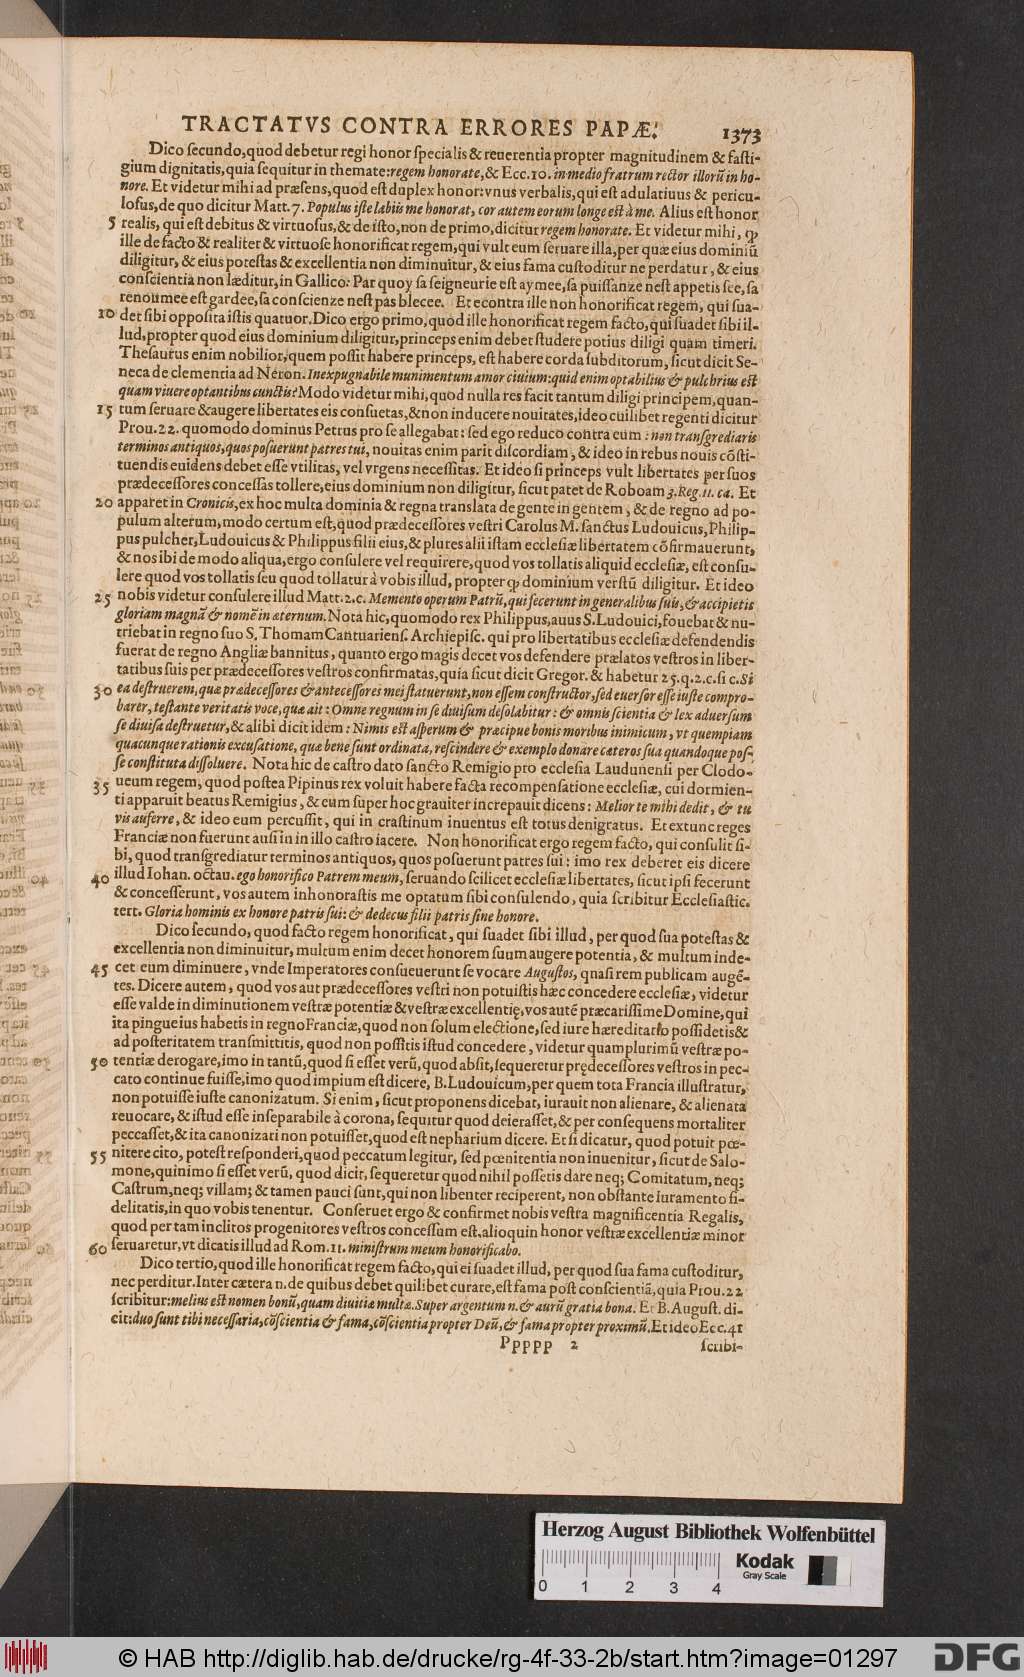 TRACTATVS CONTRA ERRORES PAPÆ. 1373
Dico secundo, quod debetur regi honor specialis & reuerentia propter magnitudinem & fasti-
gium dignitatis, quia sequitur in themate: regem honorate, & Ecc. 10. in medio fratrum rector illorū in ho-
nore. Et videtur mihi ad præsens, quod est duplex honor: vnus verbalis, qui est adulatiuus & pericu-
losus, de quo dicitur Matt. 7. Populus iste labiis me honorat, cor autem eorum longe est à me. Alius est honor
5 realis, qui est debitus & virtuosus, & de isto, non de primo, dicitur regem honorate. Et videtur mihi, ꝙ
ille de facto & realiter & virtuose honorificat regem, qui vult eum seruare illa, per quæ eius dominiū
diligitur, & eius potestas & excellentia non diminuitur, & eius fama custoditur ne perdatur, & eius
conscientia non læditur, in Gallico: Par quoy sa seigneurie est aymee, sa puissanze nest appetis see, sa
renoumee est gardee, sa conscienze nest pas blecee. Et econtra ille non honorificat regem, qui sua-
10 det sibi opposita istis quatuor. Dico ergo primo, quod ille honorificat regem facto, qui suadet sibi il-
lud, propter quod eius dominium diligitur, princeps enim debet studere potius diligi quam timeri.
Thesaurus enim nobilior, quem possit habere princeps, est habere corda subditorum, sicut dicit Se-
neca de clementia ad Neron. Inexpugnabile munimentum amor ciuium: quid enim optabilius & pulchrius est
quam viuere optantibus cunctis? Modo videtur mihi, quod nulla res facit tantum diligi principem, quan-
15 tum seruare & augere libertates eis consuetas, & non inducere nouitates, ideo cuilibet regenti dicitur
Prou. 22. quomodo dominus Petrus pro se allegabat: sed ego reduco contra eum: non transgrediaris
terminos antiquos, quos posuerunt patres tui, nouitas enim parit discordiam, & ideo in rebus nouis cōsti-
tuendis euidens debet esse vtilitas, vel vrgens necessitas. Et ideo si princeps vult libertates per suos
prædecessores concessas tollere, eius dominium non diligitur, sicut patet de Roboam 3. Reg. 11. ca. Et
20 apparet in Cronicis, ex hoc multa dominia & regna translata de gente in gentem, & de regno ad po-
pulum alterum, modo certum est, quod prædecessores vestri Carolus M. sanctus Ludouicus, Philip-
pus pulcher, Ludouicus & Philippus filii eius, & plures alii istam ecclesiæ libertatem cōfirmauerunt,
& nos ibi de modo aliqua, ergo consulere vel requirere, quod vos tollatis aliquid ecclesiæ, est consu-
lere quod vos tollatis seu quod tollatur à vobis illud, propter ꝙ dominium verstū diligitur. Et ideo
25 nobis videtur consulere illud Matt. 2. c. Memento operum Patrū, qui fecerunt in generalibus suis, & accipietis
gloriam magnā & nomē in æternum. Nota hic, quomodo rex Philippus, auus S. Ludouici, fouebat & nu-
triebat in regno suo S. Thomam Cantuariens. Archiepisc. qui pro libertatibus ecclesiæ defendendis
fuerat de regno Angliæ bannitus, quanto ergo magis decet vos defendere prælatos vestros in liber-
tatibus suis per prædecessores vestros confirmatas, quia sicut dicit Gregor. & habetur 25. q. 2. c. si c. Si
30 ea destruerem, quæ prædecessores & antecessores mei statuerunt, non essem constructor, sed euersor esse iuste compro-
barer, testante veritatis voce, quæ ait: Omne regnum in se diuisum desolabitur: & omnis scientia & lex aduersum
se diuisa destruetur, & alibi dicit idem: Nimis est asperum & præcipue bonis moribus inimicum, vt quempiam
quacunque rationis excusatione, quæ bene sunt ordinata, rescindere & exemplo donare cæteros sua quandoque pos-
se constituta dissoluere. Nota hic de castro dato sancto Remigio pro ecclesia Laudunensi per Clodo-
35 ueum regem, quod postea Pipinus rex voluit habere facta recompensatione ecclesiæ, cui dormien-
ti apparuit beatus Remigius, & eum super hoc grauiter increpauit dicens: Melior te mihi dedit, & tu
vis auferre, & ideo eum percussit, qui in crastinum inuentus est totus denigratus. Et extunc reges
Franciæ non fuerunt ausi in in illo castro iacere. Non honorificat ergo regem facto, qui consulit si-
bi, quod transgrediatur terminos antiquos, quos posuerunt patres sui: imo rex deberet eis dicere
40 illud Iohan. octau. ego honorifico Patrem meum, seruando scilicet ecclesiæ libertates, sicut ipsi fecerunt
& concesserunt, vos autem inhonorastis me optatum sibi consulendo, quia scribitur Ecclesiastic.
tert. Gloria hominis ex honore patris sui: & dedecus filii patris sine honore.
Dico secundo, quod facto regem honorificat, qui suadet sibi illud, per quod sua potestas &
excellentia non diminuitur, multum enim decet honorem suum augere potentia, & multum inde-
45 cet eum diminuere, vnde Imperatores consueuerunt se vocare Augustos, quasi rem publicam augē-
tes. Dicere autem, quod vos aut prædecessores vestri non potuistis hæc concedere ecclesiæ, videtur
esse valde in diminutionem vestræ potentiæ & vestræ excellentię, vos autē præcarissime Domine, qui
ita pingue ius habetis in regno Franciæ, quod non solum electione, sed iure hæreditario possidetis &
ad posteritatem transmittitis, quod non possitis istud concedere, videtur quamplurimū vestræ po-
50 tentiæ derogare, imo in tantū, quod si esset verū, quod absit, sequeretur prędecessores vestros in pec-
cato continue fuisse, imo quod impium est dicere, B. Ludouicum, per quem tota Francia illustratur,
non potuisse iuste canonizatum. Si enim, sicut proponens dicebat, iurauit non alienare, & alienata
reuocare, & istud esse inseparabile à corona, sequitur quod deierasset, & per consequens mortaliter
peccasset, & ita canonizari non potuisset, quod est nepharium dicere. Et si dicatur, quod potuit pœ-
55 nitere cito, potest responderi, quod peccatum legitur, sed pœnitentia non inuenitur, sicut de Salo-
mone, quinimo si esset verū, quod dicit, sequeretur quod nihil possetis dare neq; Comitatum, neq;
Castrum, neq; villam; & tamen pauci sunt, qui non libenter reciperent, non obstante iuramento fi-
delitatis, in quo vobis tenentur. Conseruet ergo & confirmet nobis vestra magnificentia Regalis,
quod per tam inclitos progenitores vestros concessum est, alioquin honor vestræ excellentiæ minor
60 seruaretur, vt dicatis illud ad Rom. 11. ministrum meum honorificabo.
Dico tertio, quod ille honorificat regem facto, qui ei suadet illud, per quod sua fama custoditur,
nec perditur. Inter cætera n. de quibus debet quilibet curare, est fama post conscientiā, quia Prou. 22
scribitur: melius est nomen bonū, quam diuitiæ multæ. Super argentum n. & aurū gratia bona. Et B. August. di-
cit: duo sunt tibi necessaria, cōscientia & fama, cōscientia propter Deū, & fama propter proximū. Et ideo Ecc. 41
Ppppp 2 scribi-
Herzog August Bibliothek Wolfenbüttel
Kodak
Gray Scale
0 1 2 3 4
© HAB http://diglib.hab.de/drucke/rg-4f-33-2b/start.htm?image=01297
DFG